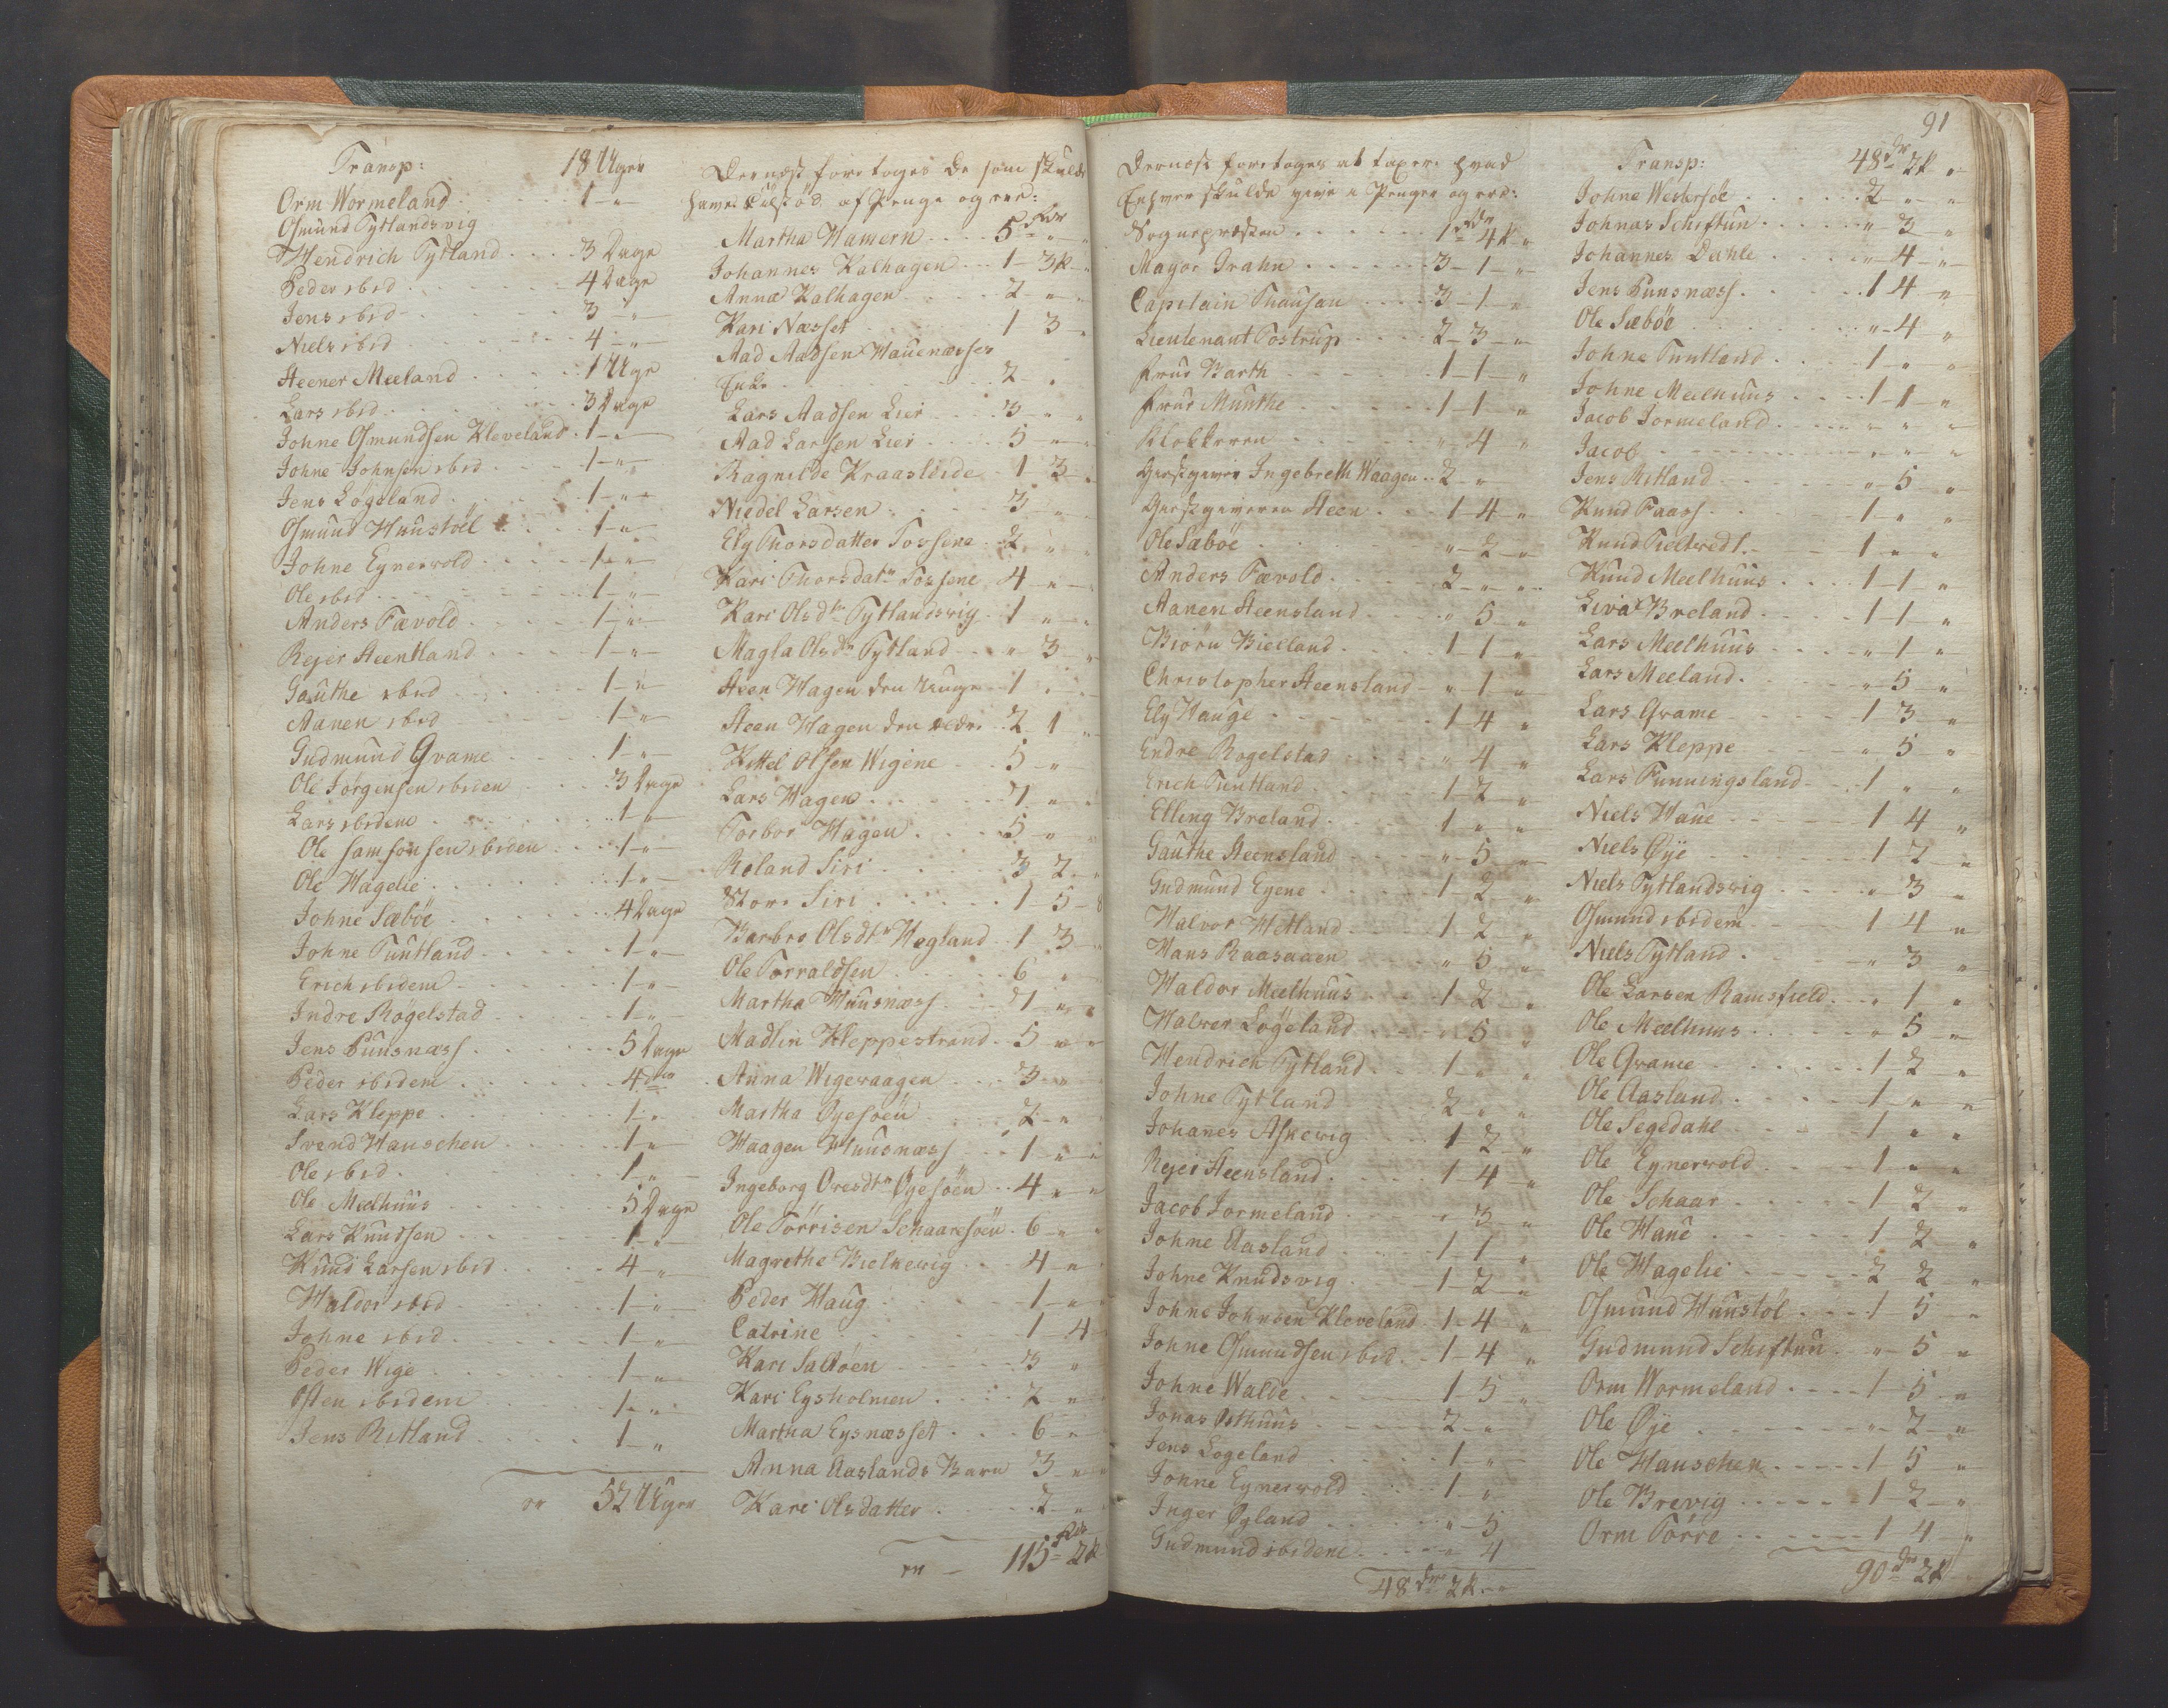 Transp: 18 Uger
Orm Wormeland 1 "
Osmund Tytlandsvig
Hendrich Tytland 3 Dage
Peder ibid 4 Dage
Jens ibid 3 "
Niels ibid 4 "
Steener Meeland 1 Uge
Lars ibid 3 Dage
Johne Osmundsen Kleveland 1 "
Johne Johnsen ibid 1 "
Jens Løgeland 1 "
Osmund Huustöel 1 "
Johne Eynervold 1 "
Ole ibid 1 "
Anders Fævold 1 "
Rejer Steensland 1 "
Gauthe ibid 1 "
Aanen ibid 1 "
Gudmund Qvame 1 "
Ole Jørgensen ibiden 3 Dage
Lars ibidem 1 "
Ole Samsonsen ibiden 1 "
Ole Hagelie 1 "
Johne Sæböe 4 Dage
Johne Tuntland 1 "
Erich ibidem 1 "
Indre Rögelstad 1 "
Jens Puusnæss 5 Dage
Peder ibidem 4 do
Lars Kleppe 1 "
Svend Hauschen 1 "
Ole ibid 1 "
Ole Meelhuus 5 Dage
Lars Knudsen 1 "
Knud Larsen ibid 4 "
Haldor ibid 1 "
Johne ibid 1 "
Peder Wige 1 "
Østen ibidem 1 "
Jens Ritland 1 "
er 52 Uger
Dernæst foretoges de som skulde
have tilstöd af Penge og ere:
Martha Hamern 5 dr "
Johannes Kalhagen 1 3 k "
Anna Kalhagen 2 " "
Kari Næsset 1 3 "
Aad Aadsen Hauenæsses
Enke 2 "
Lars Aadsen Lier 3 " "
Aad Larsen Lier 5 " "
Ragnilde Kraasliede 1 3 "
Niedel Larsen 3 " "
Ely Thorsdatter Fossene 2 " "
Kari Thorsdatr Fossene 4 " "
Kari Olsdtr Tytlandsvig 1 " "
Magla Olsdr Tytland " 3 "
Steen Hagen den unge 1 " "
Steen Hagen den ældre 2 1 "
Kittel Olsen Wigene 5 "
Lars Hagen 7 " "
Torbor Hagen 5 " "
Roland Siri 3 2 "
Store Siri 1 5
Barbro Olsdtr Hegland 1 3 "
Ole Torvaldsen 6 "
Martha Huusnæss 7 " "
Madlin Kleppestrand 5 " "
Anna Wigevaagen 3 "
Martha Øjesöen 2 "
Waagen Huusnæss 1 " "
Ingeborg Oresdtr Øyesöen 4 " "
Ole Törrisen Schaaresöen 6 " "
Magrethe Bielkevig 4 "
Peder Haug 1 " "
Catrine 1 4
Kari Saltöen 3 "
Kari Eysholmen 2 "
Martha Eysnæsset 6 "
Anna Aaslands Barn 3 "
Kari Olsdatter 2 "
er 115 dr 2 k
91
Dernæst foretoges at taxere hvad
Enhver skulde give i Penger og ere:
Sognepræsten 1 dr 4 k "
Mayor Grahn 3 1 "
Capitain Thausan 3 1 "
Lieutenant Tostrup 2 3 "
Frue Barth 1 1 "
Frue Munthe 1 1 "
Klokkeren " 4 "
Giestgiver Ingebreth Waagen 2 "
Giestgiveren Steen 1 4 "
Ole Sæböe " 2 "
Anders Fævold 2 " "
Aanen Steensland " 5 "
Biørn Bielland 1 1 "
Christopher Steensland " 1 "
Ely Hauge 1 4 "
Endre Rogelstad " 4 "
Erich Tuntland 1 2 "
Elling Breland 1 " "
Gauthe Steensland " 5 "
Gudmund Eyene 1 2 "
Halvor Hetland 1 2 "
Hans Raasaaen " 5 "
Haldor Meelhuus 1 2 "
Halver Løgeland " 5 "
Hendrich Tytland 1 " "
Johne Tytland 2 " "
Johanes Askevig 1 2 "
Rejer Steensland 1 4 "
Jacob Jormeland " 3 "
Johne Aasland 1 1 "
Johne Knudsvig 1 2 "
Johne Johnsen Kleveland 1 4 "
Johne Osmundsen ibid 1 4 "
Johne Walde 1 5 "
Jonas Østhuus 2 "
Jens Løgeland 1 "
Johne Eynervold 1 "
Inger Øgland " 5
Gudmund ibidem " 4
48 dr 2 k "
Transp: 48 dr 2 k "
Johne Westersöe 2 " "
Johnas Schiftun " 3 "
Johannes Dahle " 4 "
Jens Puusnæss 1 4 "
Ole Sæböe " 4 "
Johne Tuntland 1 " "
Johne Meelhuus 1 1 "
Jacob Jormeland " " "
Jacob " " "
Jens Ritland " 5 "
Knud Faass 1 " "
Knud Tieltvedt 1 " "
Knud Meelhuus 1 1 "
Liva Breland 1 1 "
Lars Meelhuus " 1 "
Lars Meeland " 5 "
Lars Qvame 1 3 "
Lars Kleppe " 5 "
Lars Funningsland 1 " "
Niels Haue 1 4 "
Niels Øye 1 2 "
Niels Tytlandsvig " 3 "
Osmund ibidem 1 4 "
Niels Tytland " 3 "
Ole Larsen Ramsfield " 1 "
Ole Meelhuus " 5 "
Ole Qvame 1 2 "
Ole Aasland 1 " "
Ole Segedahl 1 " "
Ole Eynervold 1 " "
Ole Schaar 1 2 "
Ole Haue 1 2 "
Ole Hagelie 2 2 "
Osmund Huustöl 1 5 "
Gudmund Schiftun " 5 "
Orm Wormeland 1 5 "
Ole Øye " 2 "
Ole Hauschen 1 5 "
Ole Brevig 1 2 "
Orm Tørre 1 4 "
90 dr 2 k